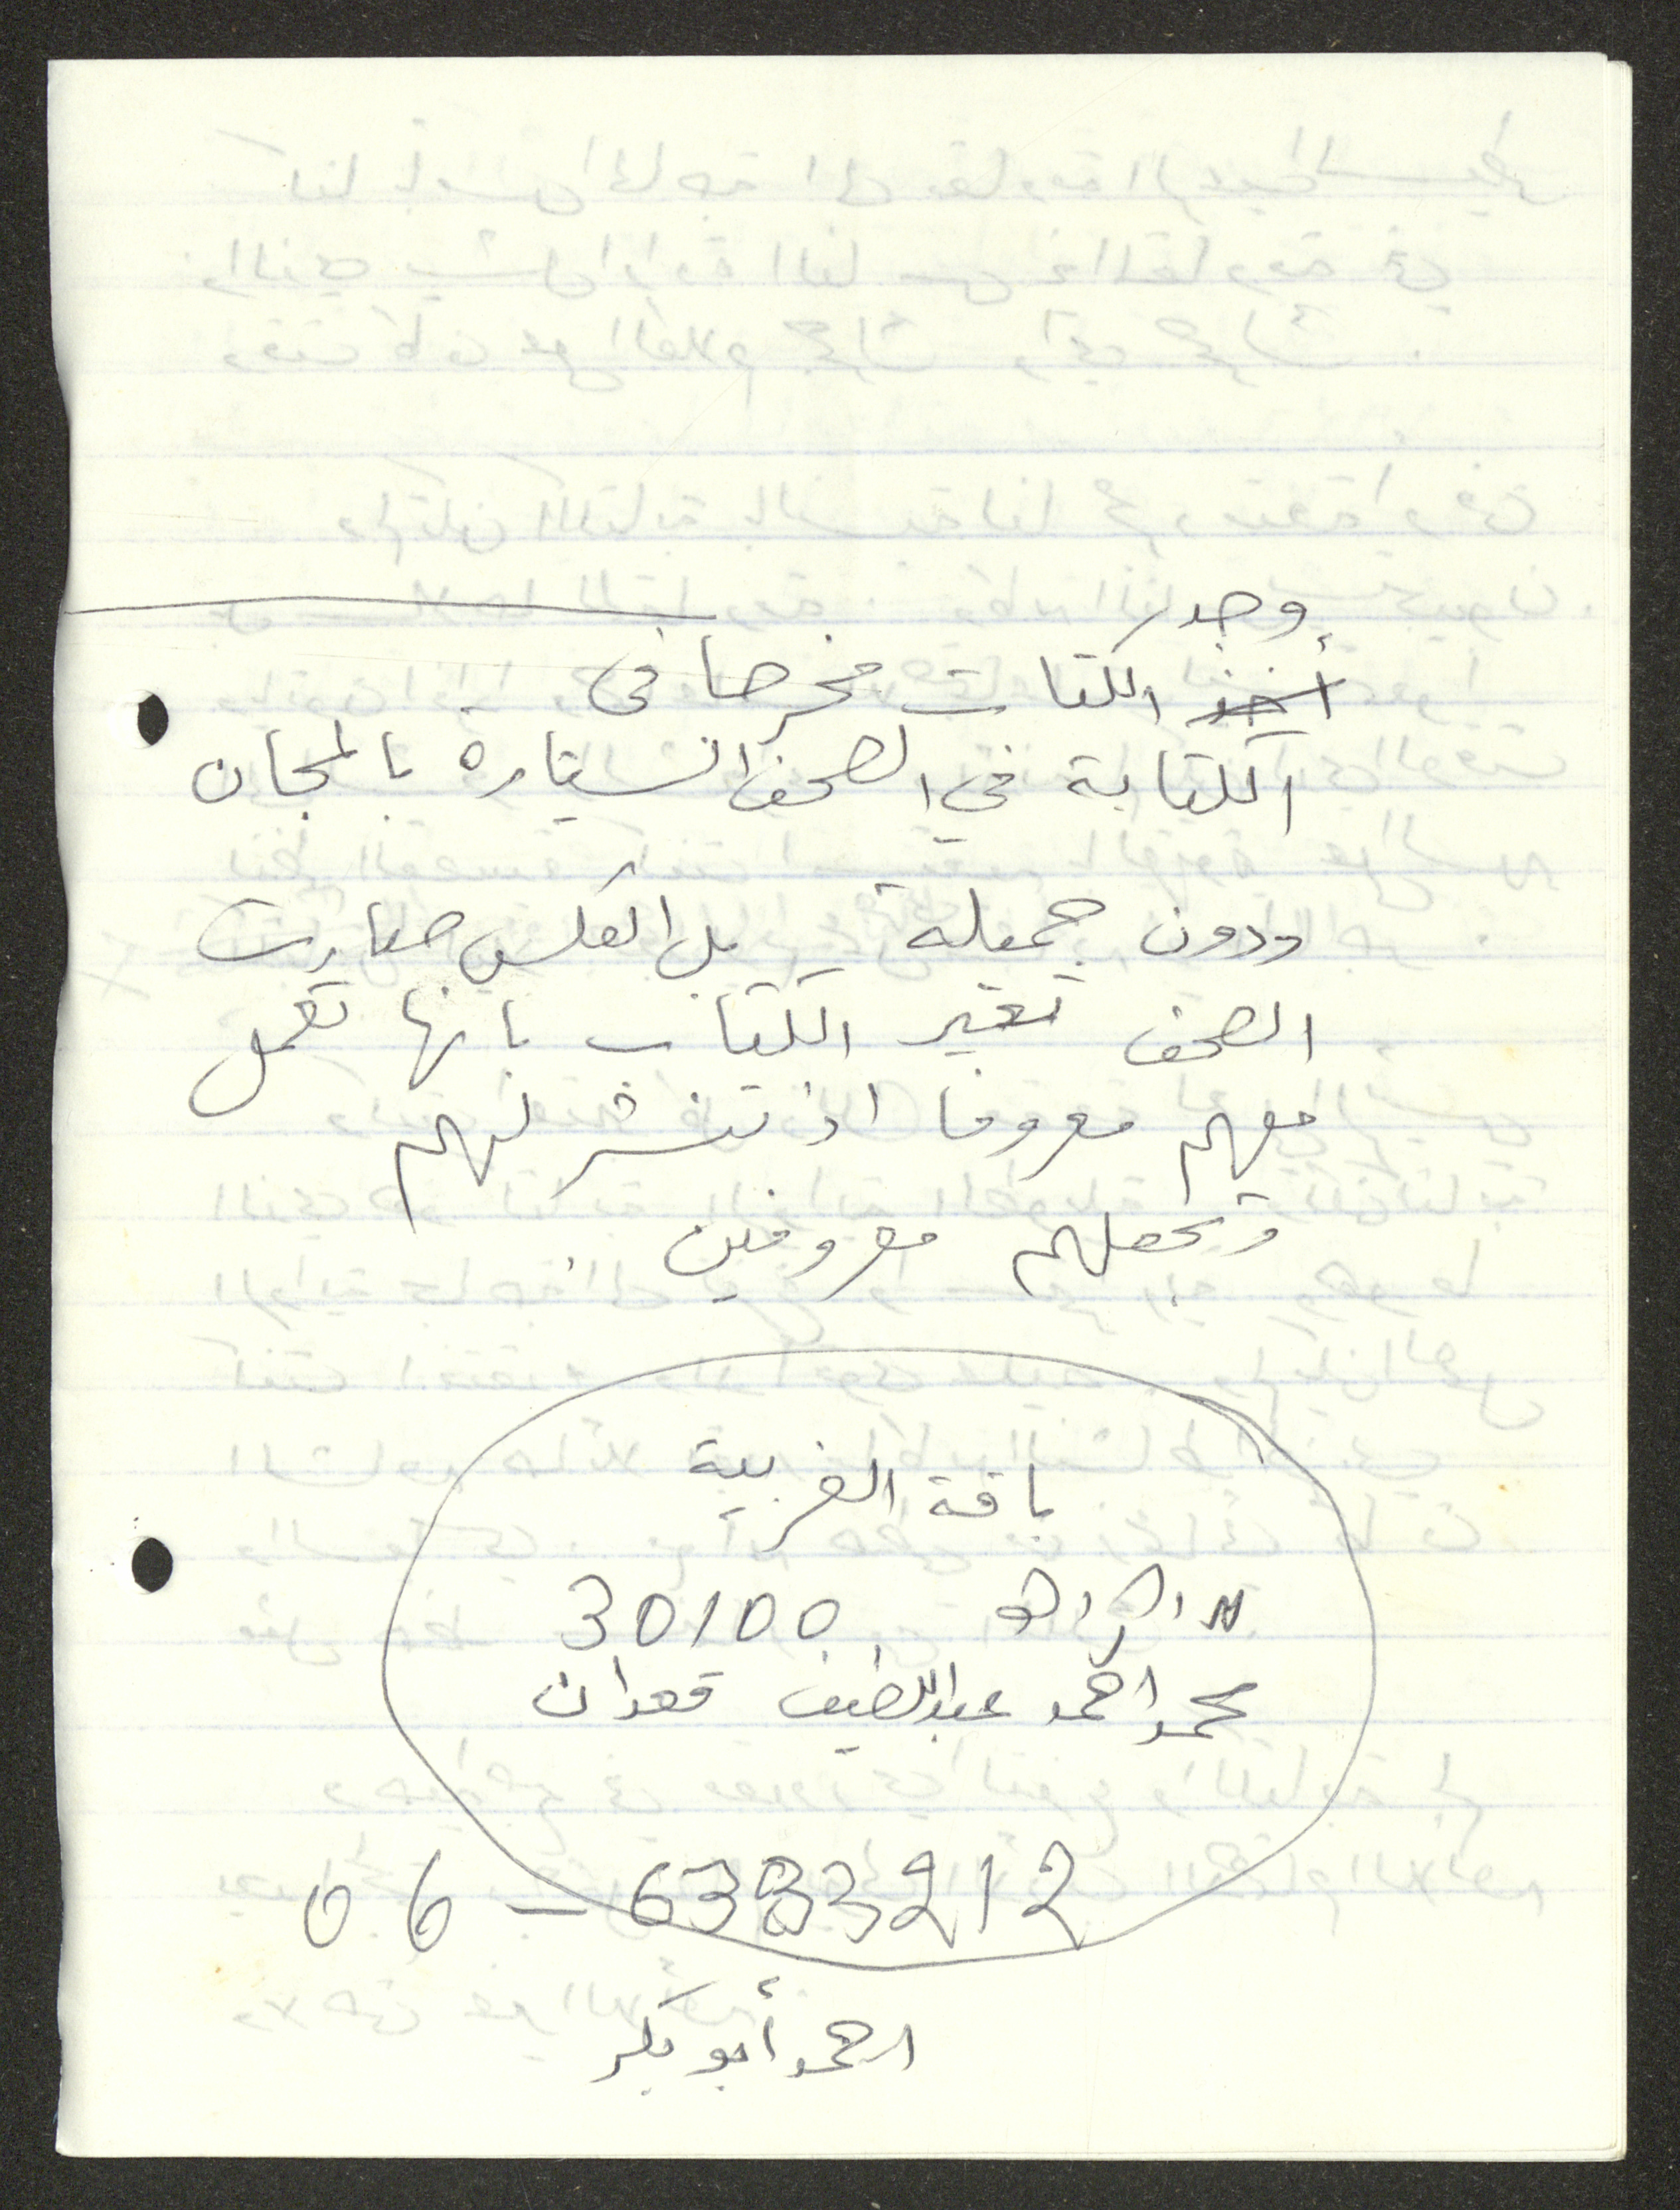 وجد
أخذ الكتاب مخرجا في
الكتابة في الصحف السيارة بالمجان
ودون جميلة بل العكس صارت
الصحف تعير الكتاب بانها تعمل
معهم معروفا اذ تنشر لهم
وتجعلهم معروفين.
باقة الغربية
30100
محمد احمد عبد اللطيف قعدان
06-6383212
احمد أبو بكر